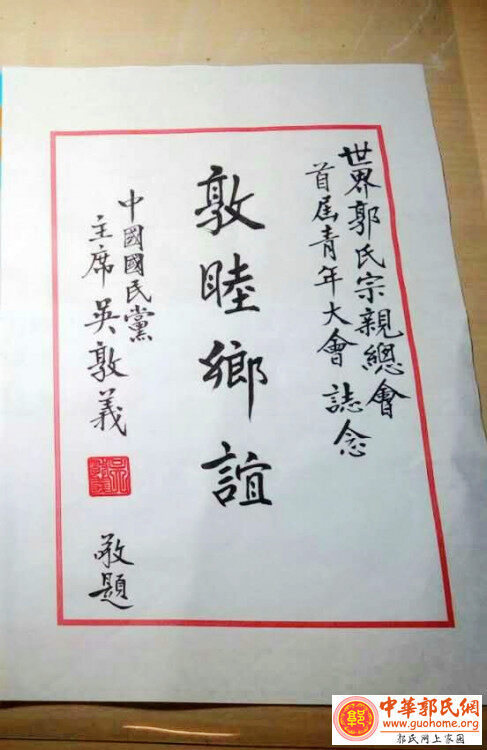 世界郭氏宗親總會
首屆青年大會 誌念
敦睦鄉誼
中國國民黨
主席 吳敦義
敬題
中華郭氏網
www.guohome.org
郭氏网上家园